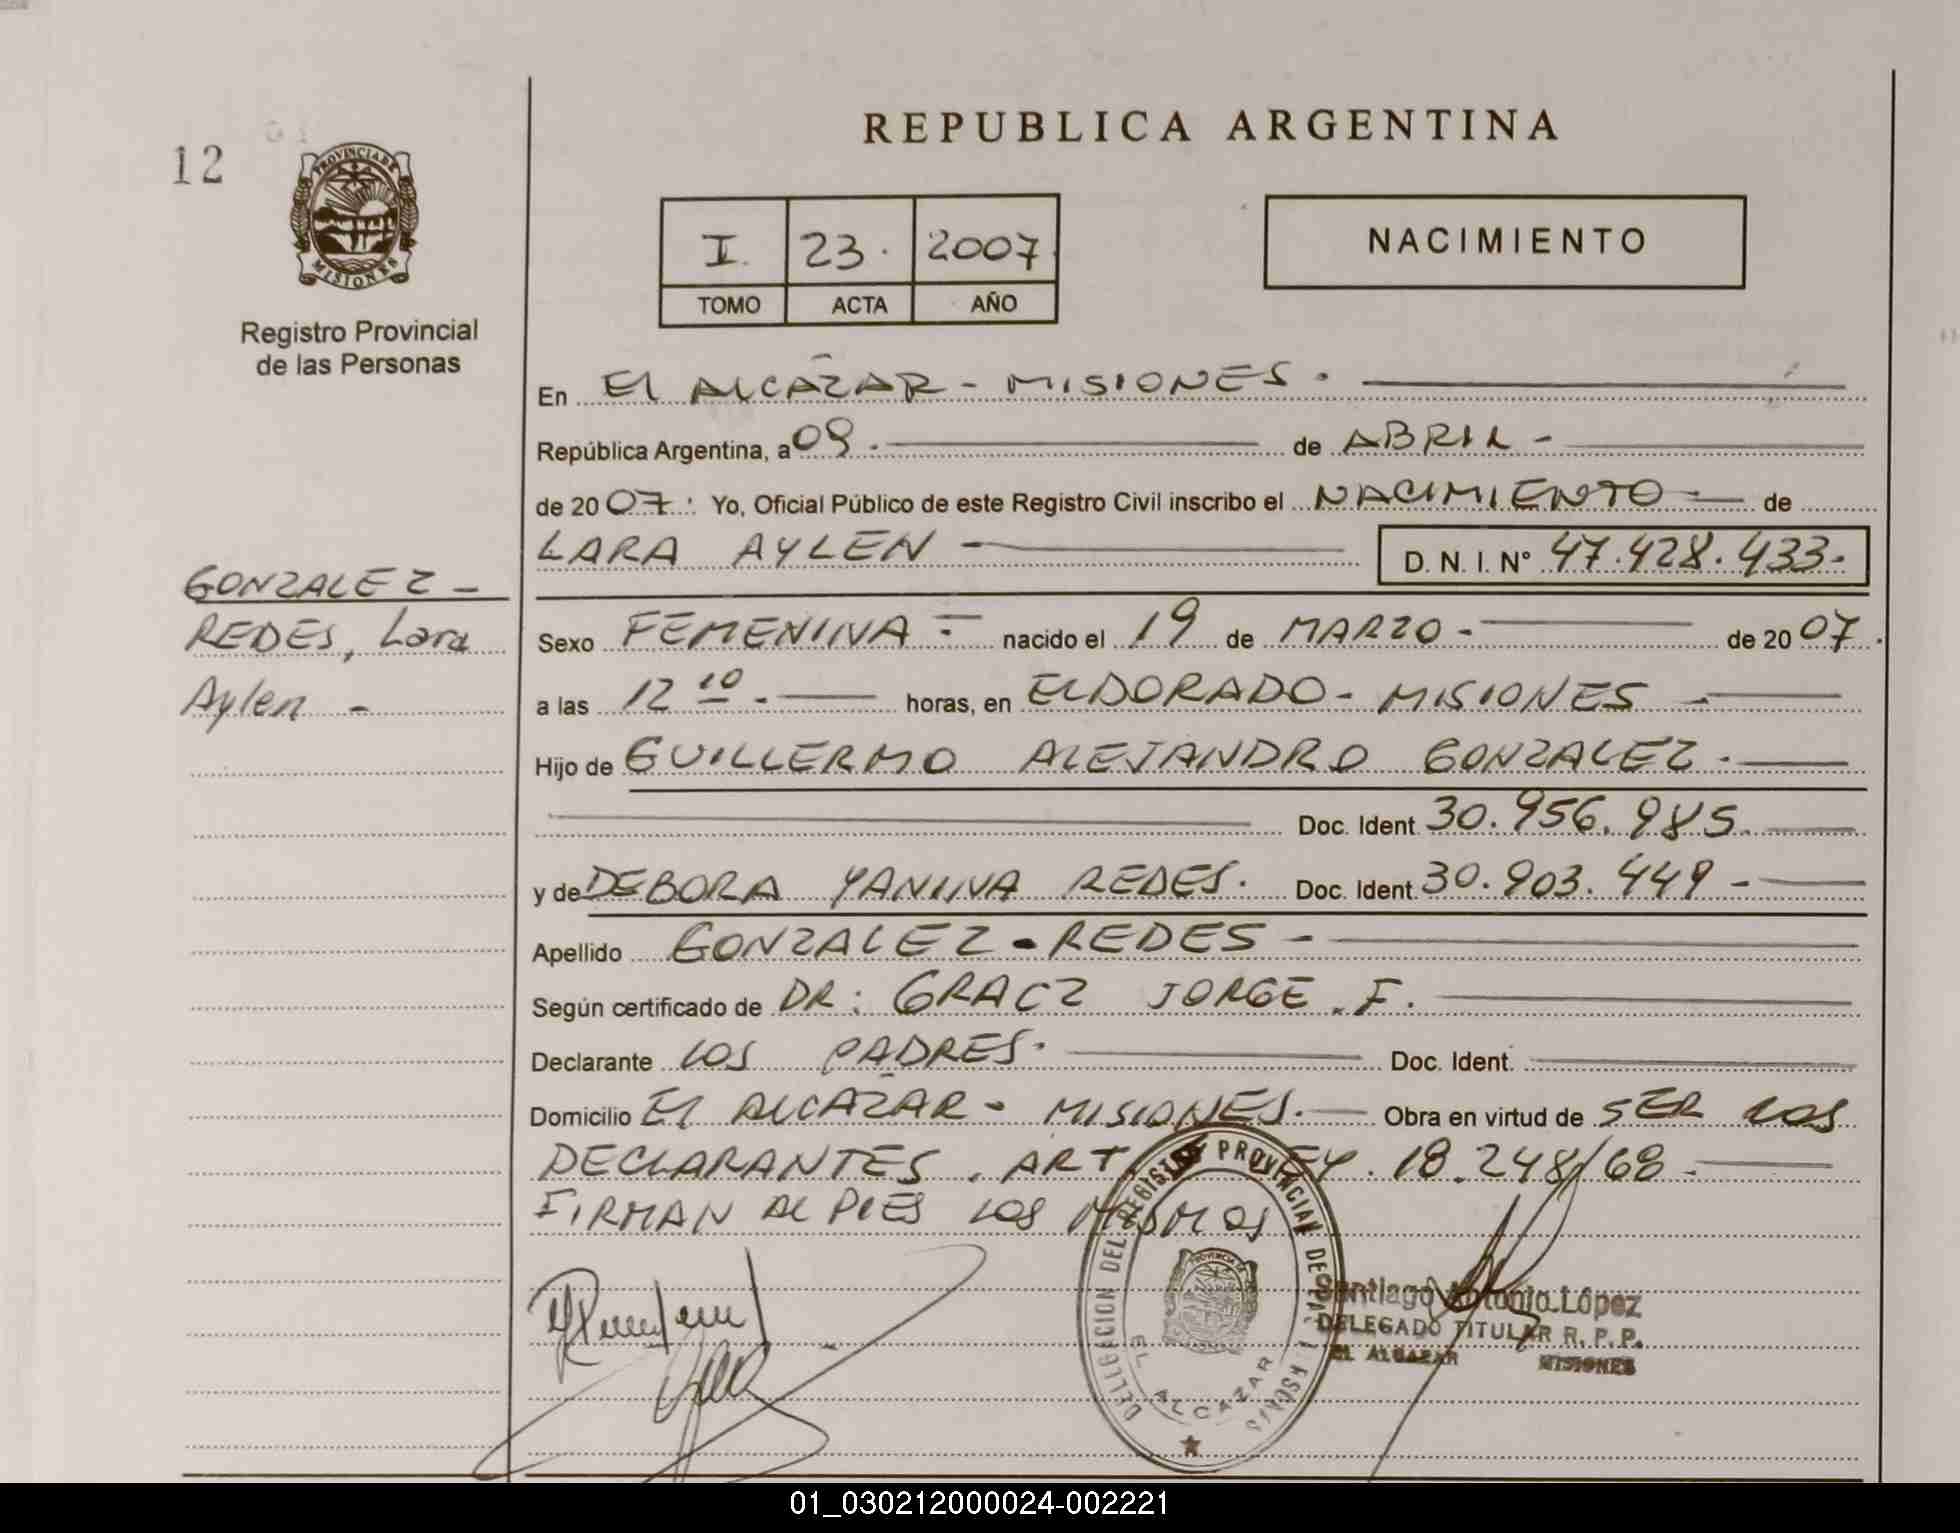 REPUBLICA ARGENTINA
12
PROVINCIA DE
MISIONES
Registro Provincial
de las Personas
I. 23. 2007.
TOMO ACTA AÑO
NACIMIENTO
En El ALCAZAR - MISIONES.
República Argentina, a 09. de ABRIL -
de 20 07. Yo, Oficial Público de este Registro Civil inscribo el NACIMIENTO - de
LARA AYLEN - D. N. I. Nº 47.428.433-
GONZALEZ -
REDES, Lara
Aylen -
Sexo FEMENINA - nacido el 19 de MARZO - de 20 07.
a las 12 10 - horas, en ELDORADO - MISIONES -
Hijo de GUILLERMO ALEJANDRO GONZALEZ.
Doc. Ident. 30.956.985.
y de DEBORA YANINA REDES. Doc. Ident. 30.903.449 -
Apellido GONZALEZ - REDES -
Según certificado de DR: GRACZ JORGE. F.
Declarante LOS PADRES. Doc. Ident.
Domicilio El ALCAZAR - MISIONES. Obra en virtud de SER LOS
DECLARANTES. ART 18.248/68.
FIRMAN AL PIES LOS MISMOS
DELEGACION DEL REGISTRO PROVINCIAL DE LAS PERSONAS
EL ALCAZAR
Santiago Antonio López
DELEGADO TITULAR R. P. P.
EL ALCAZAR MISIONES
01_030212000024-002221